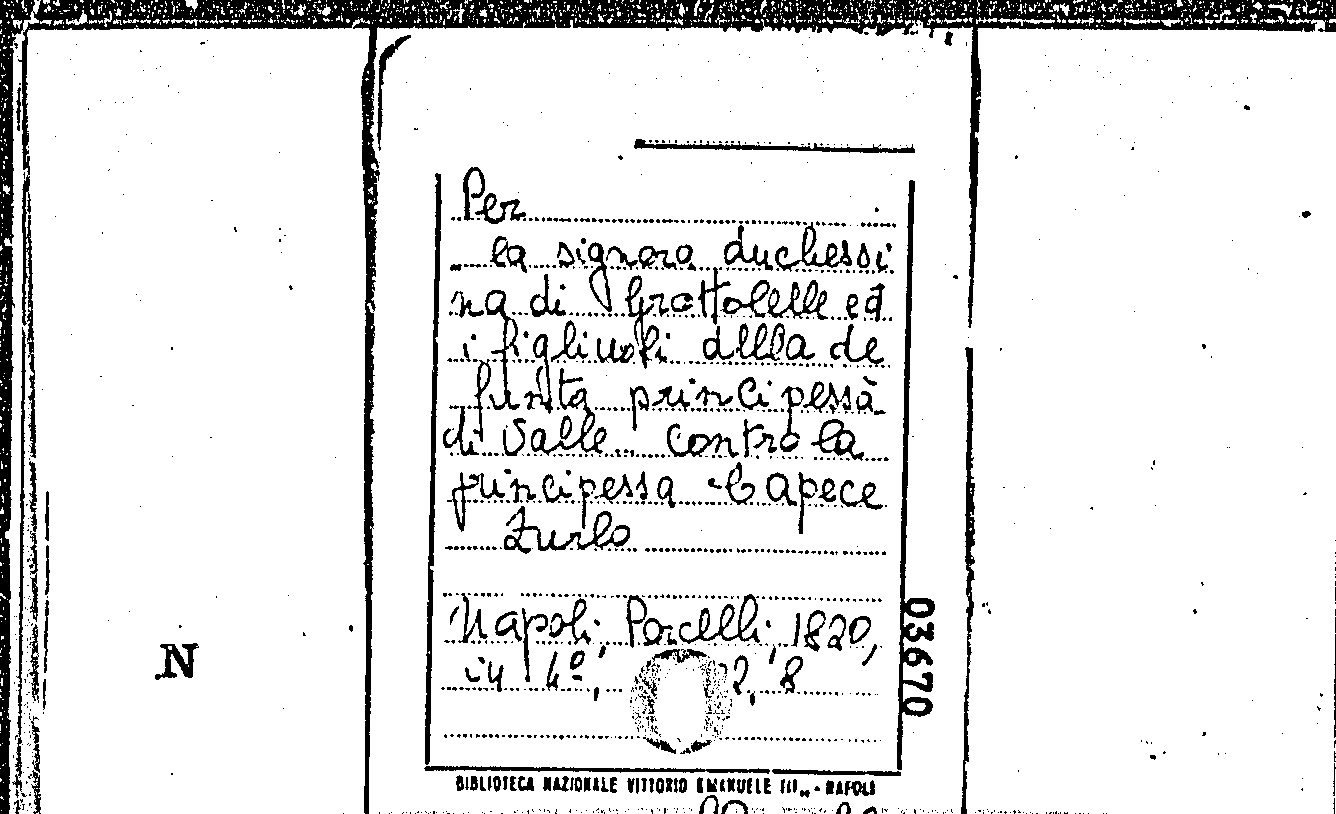 Per
la signora duchessi
na di Grottolelle ed
i figliuoli della de
funta principessa
di Valle contro la
principessa Capece
Zurlo
Napoli, Porcelli, 1820,
in 4º, 2, 8
03670
N
BIBLIOTECA NAZIONALE VITTORIO EMANUELE III„ - NAPOLI